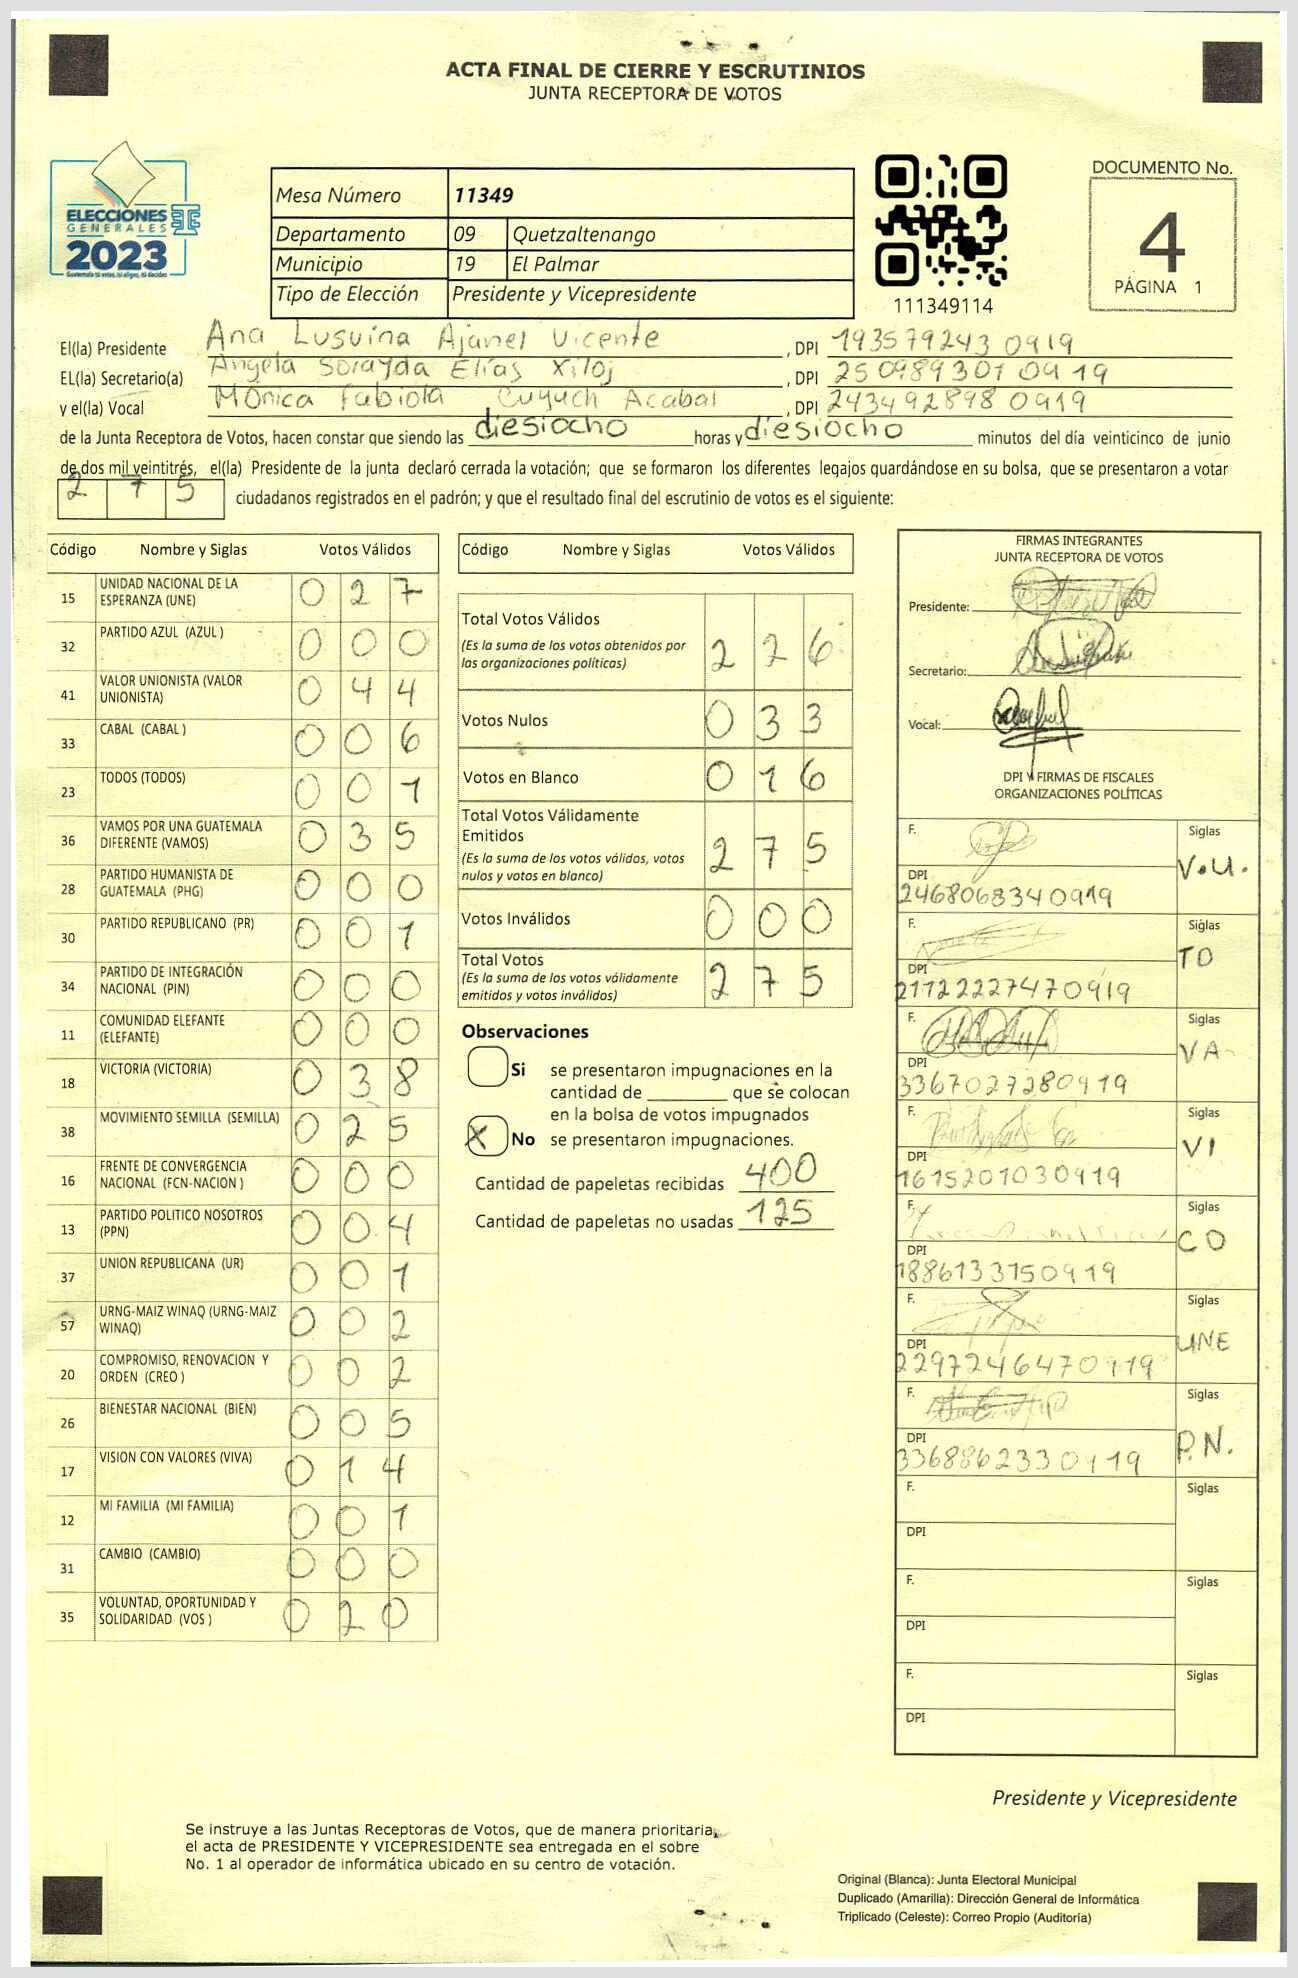 ACTA FINAL DE CIERRE Y ESCRUTINIOS
JUNTA RECEPTORA DE VOTOS
ELECCIONES
GENERALES
2023
Mesa Número 11349
Departamento 09 Quetzaltenango
Municipio 19 El Palmar
Tipo de Elección Presidente y Vicepresidente
111349114
DOCUMENTO No.
4
PÁGINA 1
El(la) Presidente Ana Lusvina Ajanel Vicente, DPI 193579243 0919
EL(la) Secretario(a) Angela Sorayda Elías Xiloj, DPI 250989301 0919
y el(la) Vocal Mónica Fabiola Cuyuch Acabal, DPI 243492898 0919
de la Junta Receptora de Votos, hacen constar que siendo las diesiocho horas y diesiocho minutos del día veinticinco de junio
de dos mil veintitrés, el(la) Presidente de la junta declaró cerrada la votación; que se formaron los diferentes legajos guardándose en su bolsa, que se presentaron a votar
275 ciudadanos registrados en el padrón; y que el resultado final del escrutinio de votos es el siguiente:
Código Nombre y Siglas Votos Válidos
15 UNIDAD NACIONAL DE LA ESPERANZA (UNE) 0 2 7
32 PARTIDO AZUL (AZUL ) 0 0 0
41 VALOR UNIONISTA (VALOR UNIONISTA) 0 4 4
33 CABAL (CABAL ) 0 0 6
23 TODOS (TODOS) 0 0 1
36 VAMOS POR UNA GUATEMALA DIFERENTE (VAMOS) 0 3 5
28 PARTIDO HUMANISTA DE GUATEMALA (PHG) 0 0 0
30 PARTIDO REPUBLICANO (PR) 0 0 1
34 PARTIDO DE INTEGRACIÓN NACIONAL (PIN) 0 0 0
11 COMUNIDAD ELEFANTE (ELEFANTE) 0 0 0
18 VICTORIA (VICTORIA) 0 3 8
38 MOVIMIENTO SEMILLA (SEMILLA) 0 2 5
16 FRENTE DE CONVERGENCIA NACIONAL (FCN-NACION ) 0 0 0
13 PARTIDO POLITICO NOSOTROS (PPN) 0 0 4
37 UNION REPUBLICANA (UR) 0 0 1
57 URNG-MAIZ WINAQ (URNG-MAIZ WINAQ) 0 0 2
20 COMPROMISO, RENOVACION Y ORDEN (CREO ) 0 0 2
26 BIENESTAR NACIONAL (BIEN) 0 0 5
17 VISION CON VALORES (VIVA) 0 1 4
12 MI FAMILIA (MI FAMILIA) 0 0 1
31 CAMBIO (CAMBIO) 0 0 0
35 VOLUNTAD, OPORTUNIDAD Y SOLIDARIDAD (VOS ) 0 2 0
Código Nombre y Siglas Votos Válidos
Total Votos Válidos 2 2 6
(Es la suma de los votos obtenidos por
las organizaciones políticas)
Votos Nulos 0 3 3
Votos en Blanco 0 1 6
Total Votos Válidamente
Emitidos 2 7 5
(Es la suma de los votos válidos, votos
nulos y votos en blanco)
Votos Inválidos 0 0 0
Total Votos 2 7 5
(Es la suma de los votos válidamente
emitidos y votos inválidos)
Observaciones
Si se presentaron impugnaciones en la
cantidad de ________ que se colocan
en la bolsa de votos impugnados
X No se presentaron impugnaciones.
Cantidad de papeletas recibidas 400
Cantidad de papeletas no usadas 125
FIRMAS INTEGRANTES
JUNTA RECEPTORA DE VOTOS
Presidente:
Secretario:
Vocal:
DPI Y FIRMAS DE FISCALES
ORGANIZACIONES POLÍTICAS
F. Siglas
DPI V.U.
2468068340919
F. Siglas
DPI TO
F. Siglas
DPI VA
3367027280919
F. Siglas
DPI VI
1615201030919
F. Siglas
DPI CO
1886133150919
F. Siglas
DPI UNE
2297246470919
F. Siglas
DPI P.N.
3368862330919
F. Siglas
DPI
F. Siglas
DPI
F. Siglas
DPI
Presidente y Vicepresidente
Se instruye a las Juntas Receptoras de Votos, que de manera prioritaria,
el acta de PRESIDENTE Y VICEPRESIDENTE sea entregada en el sobre
No. 1 al operador de informática ubicado en su centro de votación.
Original (Blanca): Junta Electoral Municipal
Duplicado (Amarilla): Dirección General de Informática
Triplicado (Celeste): Correo Propio (Auditoría)